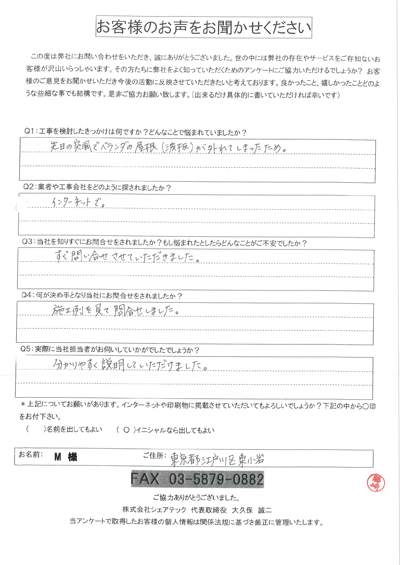 お客様のお声をお聞かせください
この度は弊社にお問い合わせをいただき、誠にありがとうございました。世の中には弊社の存在やサービスをご存知ないお
客様が沢山いらっしゃいます。その方たちに弊社をよく知っていただくためのアンケートにご協力いただけるでしょうか? お客
様のご意見をお聞かせいただき今後の活動に反映させていただきたいと考えております。良かったこと、嬉しかったことどのよ
うな些細な事でも結構です。是非ご協力お願い致します。(出来るだけ具体的に書いていただければ幸いです)
Q1:工事を検討したきっかけは何ですか?どんなことで悩まれていましたか?
先日の突風でベランダの屋根(波板)が外れてしまったため。
Q2:業者や工事会社をどのように探されましたか?
インターネットで。
Q3:当社を知りすぐにお問合せをされましたか?もし悩まれたとしたらどんなことがご不安でしたか?
すぐ問い合せさせていただきました。
Q4:何が決め手となり当社にお問合せをされましたか?
施工例を見て問合せしました。
Q5:実際に当社担当者がお伺いしていかがでしたでしょうか?
分かりやすく説明していただけました。
*上記についてお願いがあります。インターネットや印刷物に掲載させていただいてもよろしいでしょうか?下記の中から〇印
をお付下さい。
( )名前を出してもよい ( 〇 )イニシャルなら出してもよい
お名前: M 様 ご住所: 東京都江戸川区東小岩
FAX 03-5879-0882
ご協力ありがとうございました。
株式会社シェアテック 代表取締役 大久保 誠二
当アンケートで取得したお客様の個人情報は関係法規に基づき厳正に管理いたします。